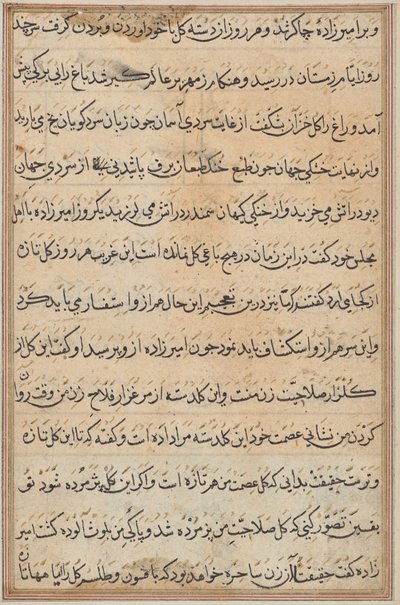 و بر امیرزاده چاکر شد و هر روز از دسته گل با خود آوردن و بردن گرفت هر چند
روز ایام زمستان در رسید و هنگام زمهریر عالم گیر شد باغ را بی برگی پیش
آمد و راغ را گل خزان شکفت از غایت سردی آسمان چون زبان سردگویان یخ می بارید
و از نهایت خنکی جهان چون طبع خنک طبعان برف پاشیدنی از سردی جهان
دیو در آتش می خزید و از خنکی کیهان سمندر در آتش می لرزید یک روز امیرزاده با اهل
مجلس خود گفت در این زمان در هیچ باغی گل نمانده است این غریب هر روز گل تازه
از کجا می آرد گفتند ما نیز درین تعجبیم این حال هم از و استفساری باید کرد
و این سر هم از و استکشاف باید نمود چون امیرزاده از و پرسید او گفت این گل از
گلزار صلاحیت زن منست و این گلدسته از مرغزار فلاح زن من وقت روان
کردن من نشانی عصمت خود این گلدسته مرا داده است و گفته که تا این گل تازه
و ترست حقیقت بدانی که گل عصمت من هم تازه است و اگر این گل پژمرده شود تو
یقین تصور کنی که گل صلاحیت من پژمرده شد و پاکی من بلوث آلوده گشت امیر
زاده گفت حقیقت آن زن ساحره خواهد بود که بافسون و طلسم گل را تا ماهها تازه